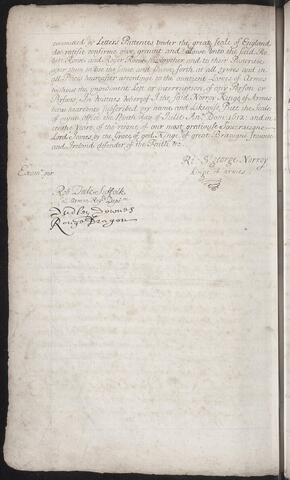 comitted by Letters Pattentes under the great seale of England
doe ratifie confirme give graunt and allowe unto the said Ro-
bert Rowe and Roger Rowe his brother and to their Posteritie
after them to use the same and beare forth at all tymes and in
all Places hearafter according to the auncient Lawes of Armes
without the impediment Lett or interruption of any Person or
Persons In wittnes wherof I the said Norroy Kinge of Armes
have hereunto subscribed my name and likewise Putt the Seale
of myne office the day of Julie Ano. Dom. 1612: and in
tenthe yeare of the reigne of our most gratious Soveraigne
Lord James by the Grace of god Kinge of great Brittayne fraunce
and Ireland defender of the Faith &c.
Ri: St George Norroy
kinge of armes
Exam: per
Rob Dale Suffolk
Dudley Downes
Rouge Dragon